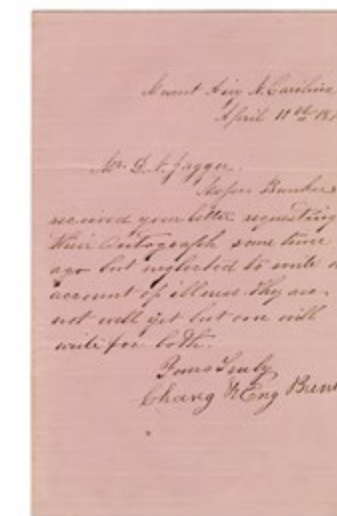 Mount Airy N. Carolina
April 11th 18
Mr. D. A. Jagger.
Messrs Bunker
received your letter requesting
their autograph some time
ago but neglected to write
account of illness. They are
not well yet but one will
write for both.
Yours Truly
Chang & Eng